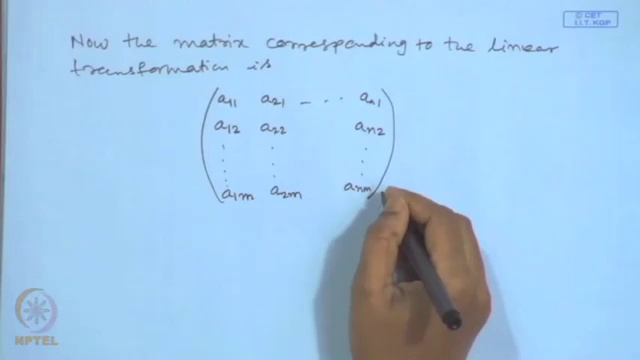 © CET
I.I.T. KGP
Now the matrix corresponding to the linear
transformation is
a11 a21 - - - an1
a12 a22 an2
a1m a2m anm
NPTEL